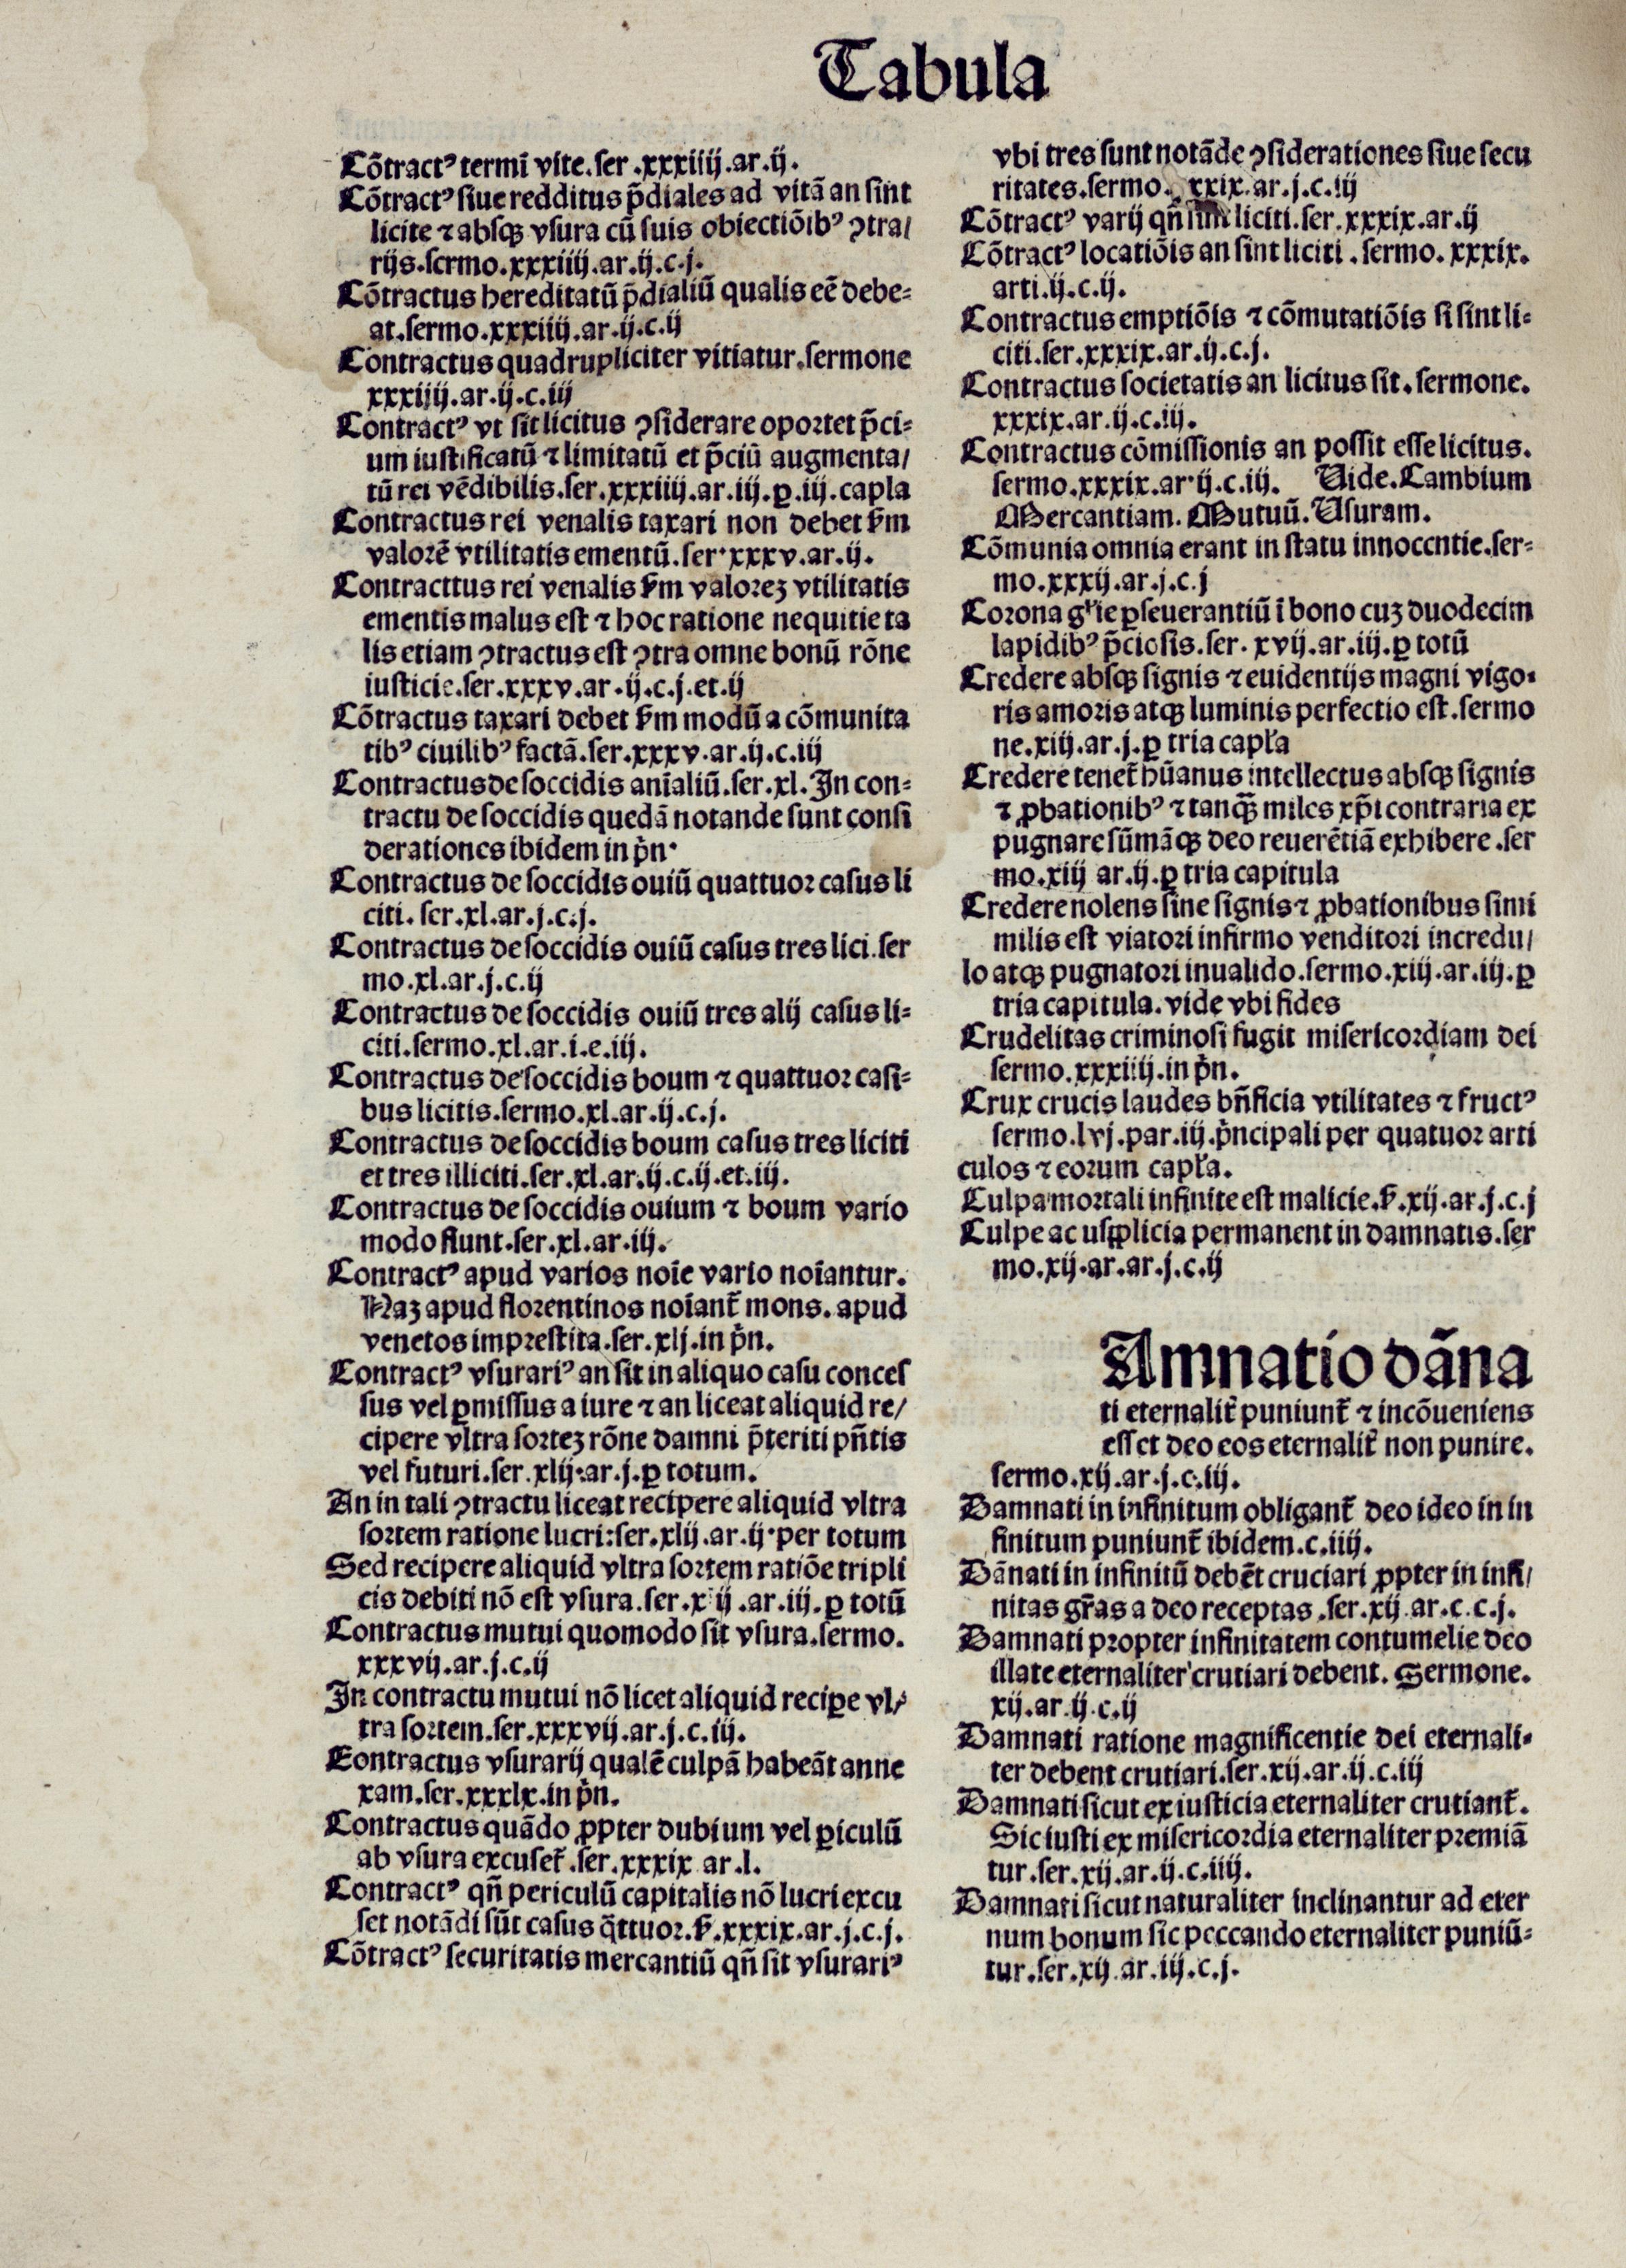 Tabula
Cõtractꝰ termĩ vite.ser.xxxiiij.ar.ij.
Cõtractꝰ siue redditus p̃diales ad vitã an sint
licite ⁊ absqꝫ vsura cũ suis obiectiõibꝰ ꝯtra/
rijs.sermo.xxxiiij.ar.ij.c.j.
Cõtractus hereditatũ p̃dialiũ qualis eẽ debe⸗
at.sermo.xxxiiij.ar.ij.c.ij
Contractus quadrupliciter vitiatur.sermone
xxxiiij.ar.ij.c.iij
Contractꝰ vt sit licitus ꝯsiderare oportet p̃ci⸗
um iustificatũ ⁊ limitatũ et p̃ciũ augmenta/
tũ rei vẽdibilis.ser.xxxiiij.ar.iij.ꝑ.iij.capla
Contractus rei venalis taxari non debet ẜm
valorẽ vtilitatis ementũ.ser.xxxv.ar.ij.
Contracttus rei venalis ẜm valoreꝫ vtilitatis
ementis malus est ⁊ hoc ratione nequitie ta
lis etiam ꝯtractus est ꝯtra omne bonũ rõne
iusticie.ser.xxxv.ar.ij.c.j.et.ij
Cõtractus taxari debet ẜm modũ a cõmunita
tibꝰ ciuilibꝰ factã.ser.xxxv.ar.ij.c.iij
Contractus de soccidis anĩaliũ.ser.xl.In con⸗
tractu de soccidis quedã notande sunt consi
derationes ibidem in pͥn.
Contractus de soccidis ouiũ quattuor casus li
citi. ser.xl.ar.j.c.j.
Contractus de soccidis ouiũ casus tres lici.ser
mo.xl.ar.j.c.ij
Contractus de soccidis ouiũ tres alij casus li⸗
citi.sermo.xl.ar.i.e.iij.
Contractus de soccidis boum ⁊ quattuor casi⸗
bus licitis.sermo.xl.ar.ij.c.j.
Contractus de soccidis boum casus tres liciti
et tres illiciti.ser.xl.ar.ij.c.ij.et.iij.
Contractus de soccidis ouium ⁊ boum vario
modo fiunt.ser.xl.ar.iij.
Contractꝰ apud varios noĩe vario noĩantur.
Naꝫ apud florentinos noĩant᷑ mons. apud
venetos imprestita.ser.xlj.in pͥn.
Contractꝰ vsurariꝰ an sit in aliquo casu conces
sus vel ꝑmissus a iure ⁊ an liceat aliquid re/
cipere vltra sorteꝫ rõne damni p̃teriti pñtis
vel futuri.ser.xlij.ar.j.ꝑ totum.
An in tali ꝯtractu liceat recipere aliquid vltra
sortem ratione lucri:ser.xlij.ar.ij.per totum
Sed recipere aliquid vltra sortem ratiõe tripli
cis debiti nõ est vsura.ser.x ij.ar.iij.ꝑ totũ
Contractus mutui quomodo sit vsura.sermo.
xxxvij.ar.j.c.ij
In contractu mutui nõ licet aliquid reciꝑe vl/
tra sortem.ser.xxxvij.ar.j.c.iij.
Eontractus vsurarij qualẽ culpã habeãt anne
xam.ser.xxxlx.in pͥn.
Contractus quãdo ꝓpter dubium vel ꝑiculũ
ab vsura excuset᷑.ser.xxxix ar.l.
Contractꝰ qñ periculũ capitalis nõ lucri excu
set notãdi sũt casus q̃ttuor.ẜ.xxxix.ar.j.c.j.
Cõtractꝰ securitatis mercantiũ qñ sit vsurariꝰ
vbi tres sunt notãde ꝯsiderationes siue secu
ritates.sermo. xxix.ar.j.c.iij
Cõtractꝰ varij qñ liciti.ser.xxxix.ar.ij
Cõtractꝰ locatiõis an sint liciti.sermo.xxxix.
arti.ij.c.ij.
Contractus emptiõis ⁊ cõmutatiõis si sint li⸗
citi.ser.xxxix.ar.ij.c.j.
Contractus societatis an licitus sit.sermone.
xxxix.ar.ij.c.iij.
Contractus cõmissionis an possit esse licitus.
sermo.xxxix.ar.ij.c.iij. Uide.Cambium
Mercantiam. Mutuũ. Usuram.
Cõmunia omnia erant in statu innoccntie.ser⸗
mo.xxxij.ar.j.c.j
Corona gl̕ie ꝑseuerantiũ ĩ bono cuꝫ duodecim
lapidibꝰ p̃ciosis.ser.xvij.ar.iij.ꝑ totũ
Credere absqꝫ signis ⁊ euidentijs magni vigo⸗
ris amoris atqꝫ luminis perfectio est.sermo
ne.xiij.ar.j.ꝑ tria capl̕a
Credere tenet᷑ hũanus intellectus absqꝫ signis
⁊ ꝓbationibꝰ ⁊ tanqꝫ̃ miles xp̃i contraria ex
pugnare sũmãqꝫ deo reuerẽtiã exhibere.ser
mo.xiij ar.ij.ꝑ tria capitula
Credere nolens sine signis ⁊ ꝓbationibus simi
milis est viatori infirmo venditori incredu/
lo atqꝫ pugnatori inualido.sermo.xiij.ar.iij.ꝑ
tria capitula.vide vbi fides
Crudelitas criminosi fugit misericordiam dei
sermo.xxxiiij.in pͥn.
Crux crucis laudes bñficia vtilitates ⁊ fructꝰ
sermo.lvj.par.iij.pͥncipali per quatuor arti
culos ⁊ eorum capl̕a.
Culpa mortali infinite est malicie.ẜ.xij.ar.j.c.j
Culpe ac usꝑplicia permanent in damnatis.ser
mo.xij.ar.ar.j.c.ij
Amnatio dãna
ti eternalit᷑ puniunt᷑ ⁊ incõueniens
esset deo eos eternalit᷑ non punire.
sermo.xij.ar.j.c.iij.
Damnati in infinitum obligant᷑ deo ideo in in
finitum puniunt᷑ ibidem.c.iiij.
Dãnati in infinitũ debẽt cruciari ꝓpter in infi/
nitas gr̃as a deo receptas.ser.xij.ar.c.c.j.
Damnati propter infinitatem contumelie deo
illate eternaliter crutiari debent. Sermone.
xij.ar.ij.c.ij
Damnati ratione magnificentie dei eternali⸗
ter debent crutiari.ser.xij.ar.ij.c.iij
Damnati sicut ex iusticia eternaliter crutiant᷑.
Sic iusti ex misericordia eternaliter premiã
tur.ser.xij.ar.ij.c.iiij.
Damnati sicut naturaliter inclinantur ad eter
num bonum sic peccando eternaliter puniũ⸗
tur.ser.xij.ar.iij.c.j.